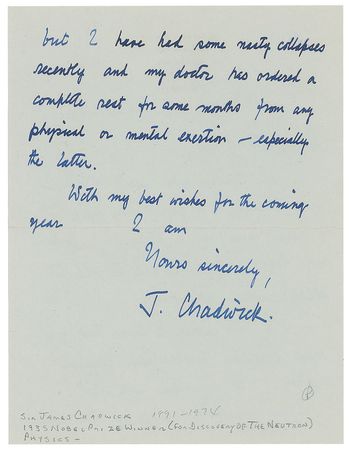 but I have had some nasty collapses
recently and my doctor has ordered a
complete rest for some months from any
physical or mental exertion – especially
the latter.
With my best wishes for the coming
year I am
Yours sincerely,
J. Chadwick.
SIR JAMES CHADWICK 1891-1974
1935 NOBEL PRIZE WINNER (FOR DISCOVERY OF THE NEUTRON)
PHYSICS –